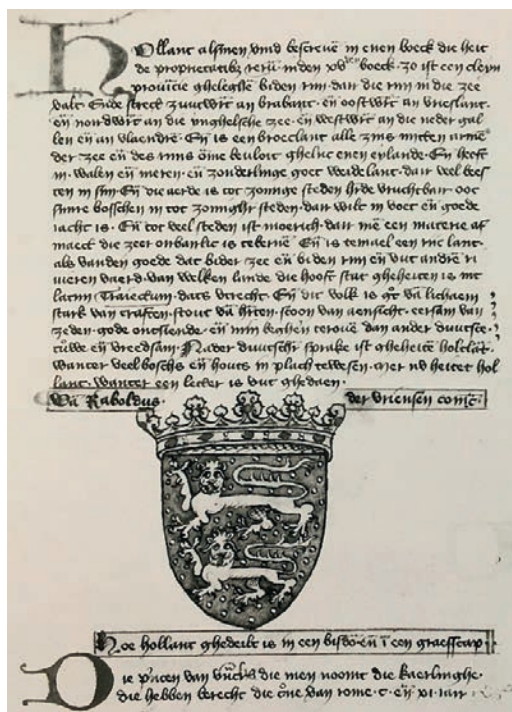 Hollant alsmen vind bescreuē in enen boeck die heit
de proprietatibz rerū inden xvden boeck. zo ist een cleyn
prouīcie gheleghē biden rijn dair die rijn in die zee
valt. Ende streck zuutwīt an brabant. en̄ oostwīt an vrieslant.
en̄ noordwīt an die inghelsche zee. en̄ westwīt an die neder gal
len en̄ an vlaendrē. En̄ is een broeclant alse zijns mitten armē
der zee en̄ des rijns ōme beuloit ghelijc enen eylande. En̄ heeft
in. walen en̄ meren. en̄ zonderlinge goet weidelant. dair veel bees
ten in sijn. En̄ die aerde is tot zommige steden vruchtbair ooc
sijnre bosschen in tot zommighe steden. dair wilt in voet en̄ goede
iacht is. En̄ tot veel steden ist moerich. dair mē een materie af
maect die zeer onbarlic is te En̄ is temael een rijc lant.
als vanden goede dat bider zee en̄ biden rijn en̄ vut andrē ri
uieren vaerd. van welken lande die hooft stat gheheiten is int
latijn Traiectum. dats vtrecht. En̄ dit volc is van lichaem
stark van craften. stout van hertē. scoon van aensicht. eersam van
zeden. gode onstlende. en̄ min gheneghen te rouē dan ander duutsce.
en̄ vreedsam. Nader duutscher sprake ist gheheitē holtlāt.
wanter veel boschs en̄ houts in plach te wesen. Mer nv heitet hol
lant. wanter een letter is vut ghedaen.
Van Raboldus. der vriesen comīc.
Hoe hollant ghedeilt is in een bisdō en̄ ī een graefscap.
Die prīcen van die men noomt die kaerlinghe.
die hebben berecht die crōne van rome. c. en̄ xi. iair